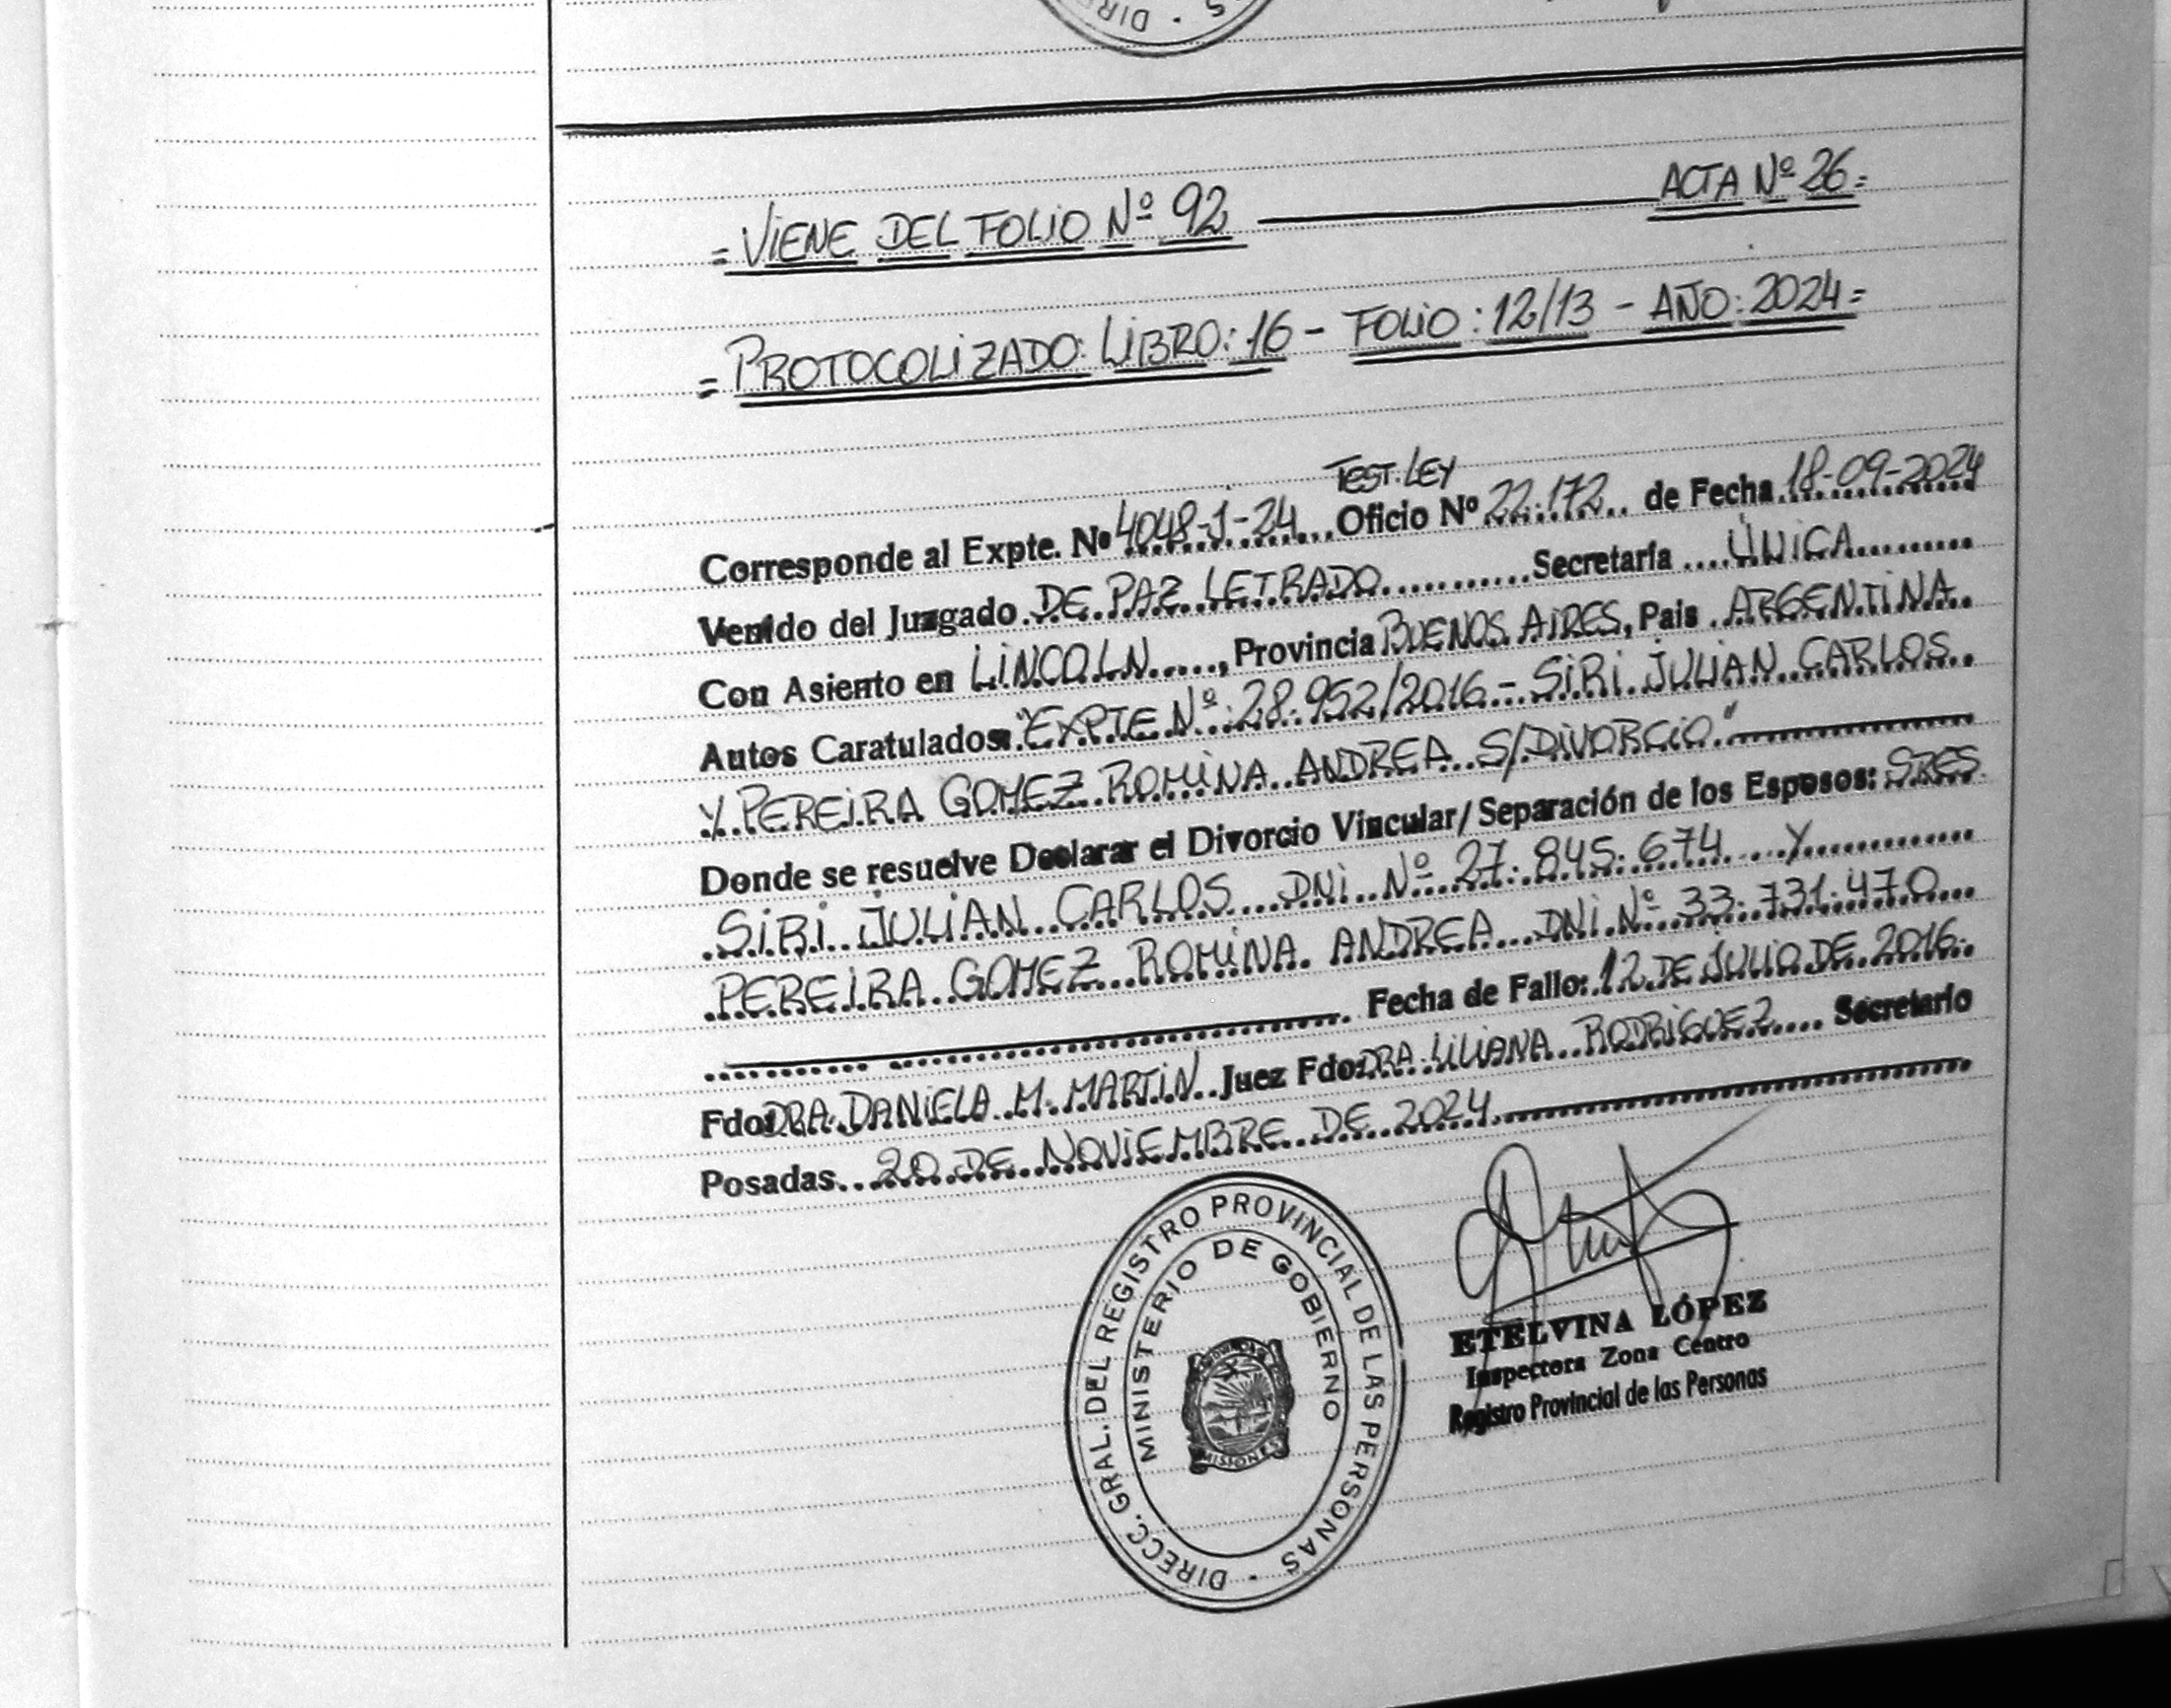 DIRE
= VIENE DEL FOLIO Nº 92 ——— ACTA Nº 26 =
= PROTOCOLIZADO: LIBRO: 16 - FOLIO: 12/13 - AÑO: 2024 =
TEST. LEY
Corresponde al Expte. Nº 4048-J-24 Oficio Nº 22.172 de Fecha 18-09-2024
Venido del Juzgado DE PAZ LETRADO Secretaría ÚNICA
Con Asiento en LINCOLN, Provincia BUENOS AIRES, Pais ARGENTINA
Autos Caratulados: "EXPTE Nº 28.952/2016 - SIRI JULIAN CARLOS
Y PEREIRA GOMEZ ROMINA ANDREA S/DIVORCIO"
Donde se resuelve Declarar el Divorcio Vincular/Separación de los Esposos: SRES
SIRI JULIAN CARLOS DNI Nº 27.845.674 Y
PEREIRA GOMEZ ROMINA ANDREA DNI Nº 33.731.470
Fecha de Fallo: 12 DE JULIO DE 2016
Fdo: DRA. DANIELA M. MARTIN Juez Fdo: DRA. LILIANA RODRIGUEZ Secretario
Posadas 20 DE NOVIEMBRE DE 2024
DIRECC. GRAL. DEL REGISTRO PROVINCIAL DE LAS PERSONAS
MINISTERIO DE GOBIERNO
MISIONES
ETELVINA LÓPEZ
Inspectora Zona Centro
Registro Provincial de las Personas